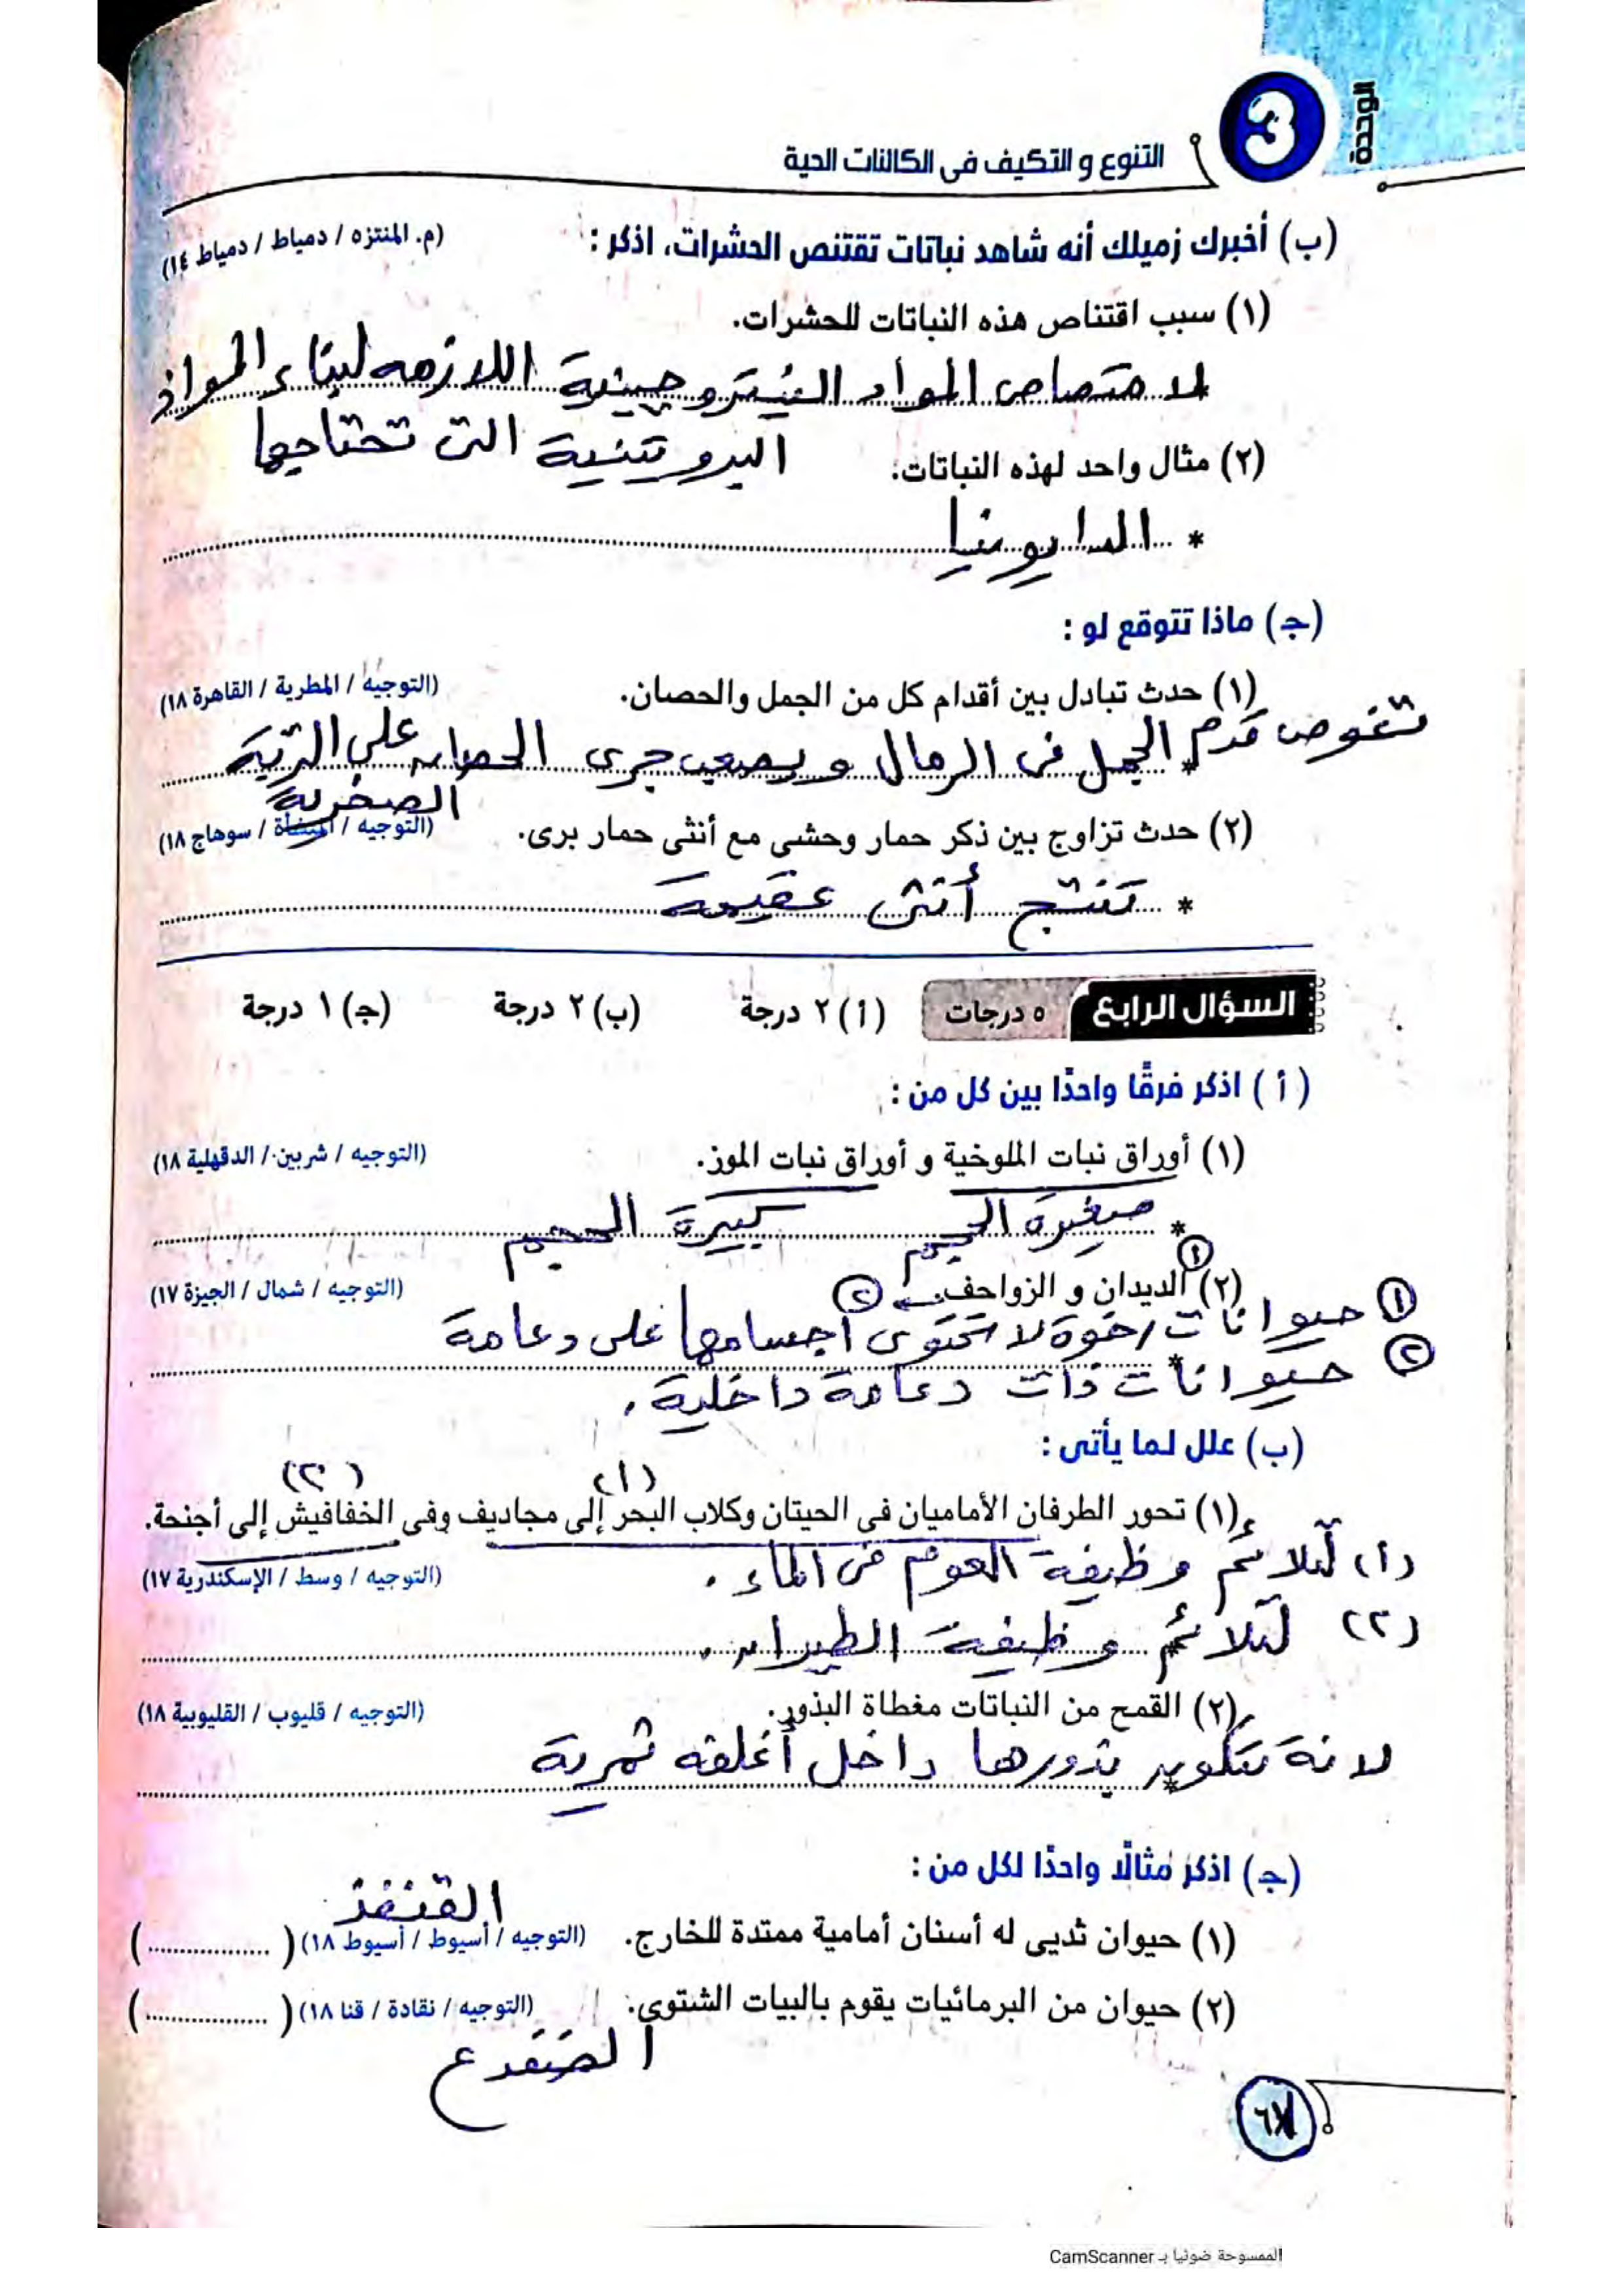 الوحدة
3
التنوع و التكيف فى الكائنات الحية
(ب) أخبرك زميلك أنه شاهد نباتات تقتنص الحشرات، اذكر :
(م. المنتزه / دمياط / دمياط ١٤)
(١) سبب اقتناص هذه النباتات للحشرات.
لامتصاص المواد النيتروجينية اللازمه لبناء المواد
البروتينية التى تحتاجها
(٢) مثال واحد لهذه النباتات.
* الدايونيا
(جـ) ماذا تتوقع لو :
(١) حدث تبادل بين أقدام كل من الجمل والحصان.
(التوجيه / المطرية / القاهرة ١٨)
تغوص قدم الجمل فى الرمال و يصعب جرى الحصان على التربة
الصخرية
(٢) حدث تزاوج بين ذكر حمار وحشى مع أنثى حمار برى.
(التوجيه / المنشأة / سوهاج ١٨)
* تنتج أنثى عقيمة
السؤال الرابع
٥ درجات
(أ) ٢ درجة
(ب) ٢ درجة
(جـ) ١ درجة
(أ) اذكر فرقًا واحدًا بين كل من :
(١) أوراق نبات الملوخية و أوراق نبات الموز.
(التوجيه / شربين / الدقهلية ١٨)
* صغيرة الحجم كبيرة الحجم
(٢) الديدان و الزواحف.
(التوجيه / شمال / الجيزة ١٧)
① حيوانات رخوة لا تحتوى أجسامها على دعامة
② حيوانات ذات دعامة داخلية.
(ب) علل لما يأتى :
(١) (٢)
(١) تحور الطرفان الأماميان فى الحيتان وكلاب البحر إلى مجاديف وفى الخفافيش إلى أجنحة.
(التوجيه / وسط / الإسكندرية ١٧)
(١) لتلائم وظيفة العوم فى الماء.
(٢) لتلائم وظيفة الطيران.
(٢) القمح من النباتات مغطاة البذور.
(التوجيه / قليوب / القليوبية ١٨)
لانة تتكون بذورها داخل أغلفه ثمرية
(جـ) اذكر مثالًا واحدًا لكل من :
القنفذ
(١) حيوان ثديى له أسنان أمامية ممتدة للخارج.
(التوجيه / أسيوط / أسيوط ١٨) (..................)
(٢) حيوان من البرمائيات يقوم بالبيات الشتوى.
(التوجيه / نقادة / قنا ١٨) (..................)
الضفدع
الممسوحة ضوئيا بـ CamScanner